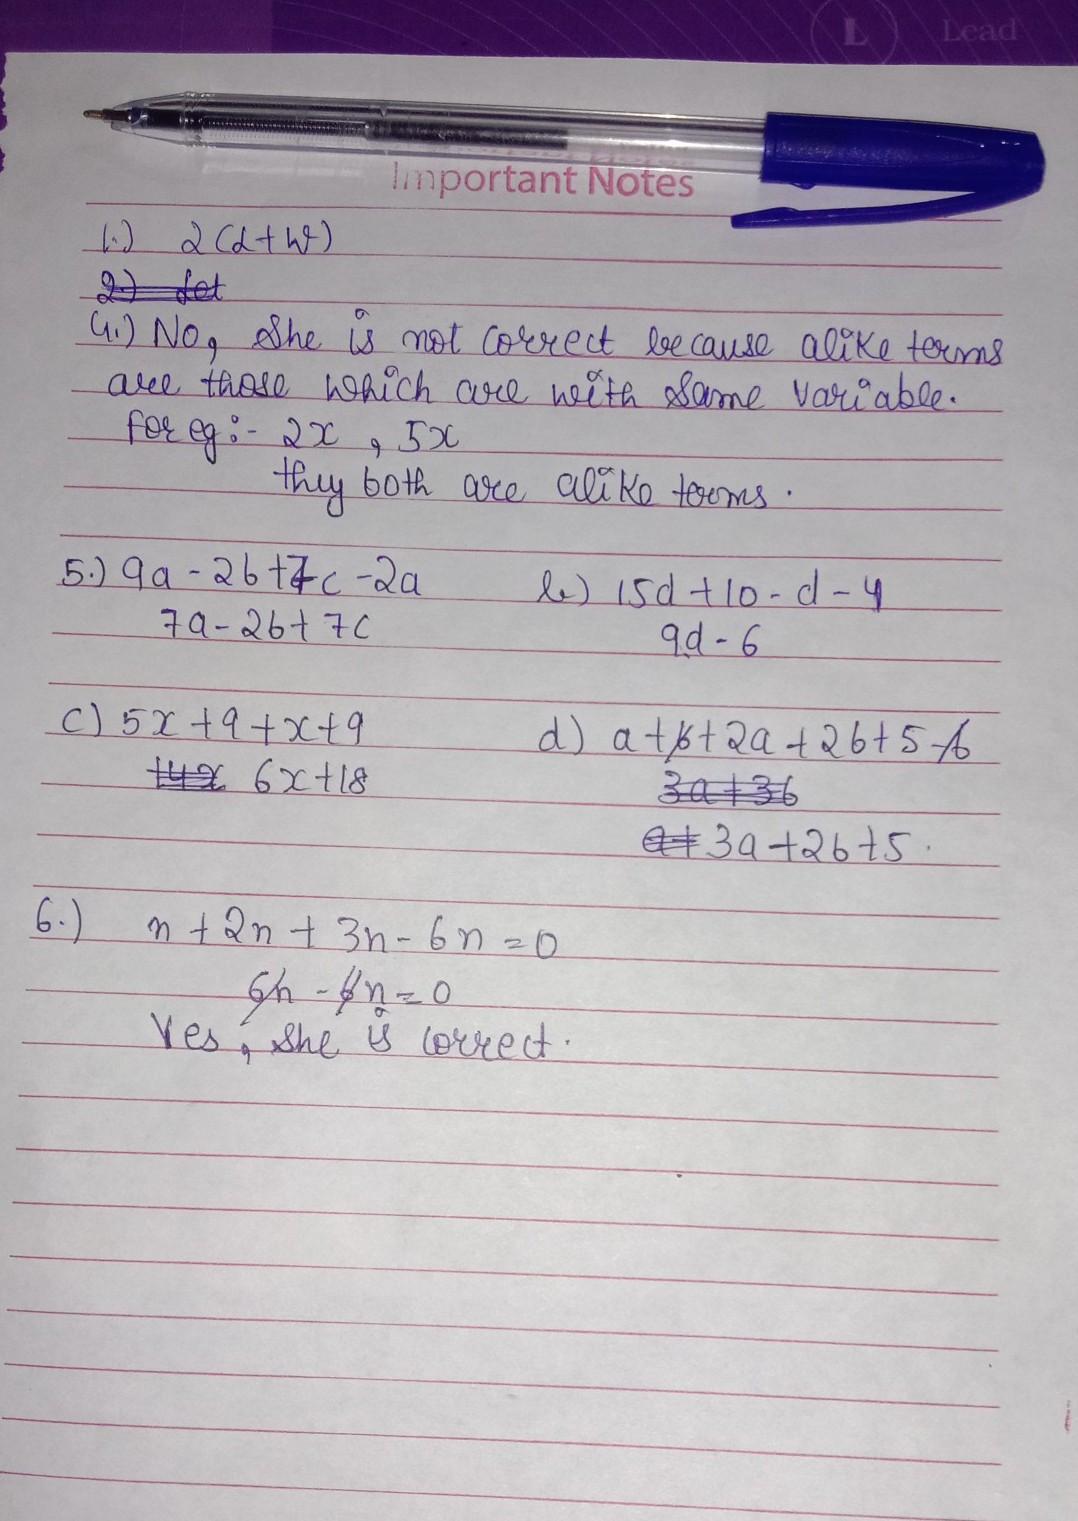 L Lead
Important Notes
1.) 2(d+w)
2) let
4.) No, She is not correct because alike terms
are those which are with same variable.
for eg:- 2x, 5x
they both are alike terms.
5.) 9a-2b+7c-2a
7a-2b+7c
b.) 15d+10-d-4
9d-6
c) 5x+9+x+9
+4x 6x+18
d) a+b+2a+2b+5-b
3a+3b
a+ 3a+2b+5.
6.) n+2n+3n-6n=0
6n-6n=0
Yes, she is correct.